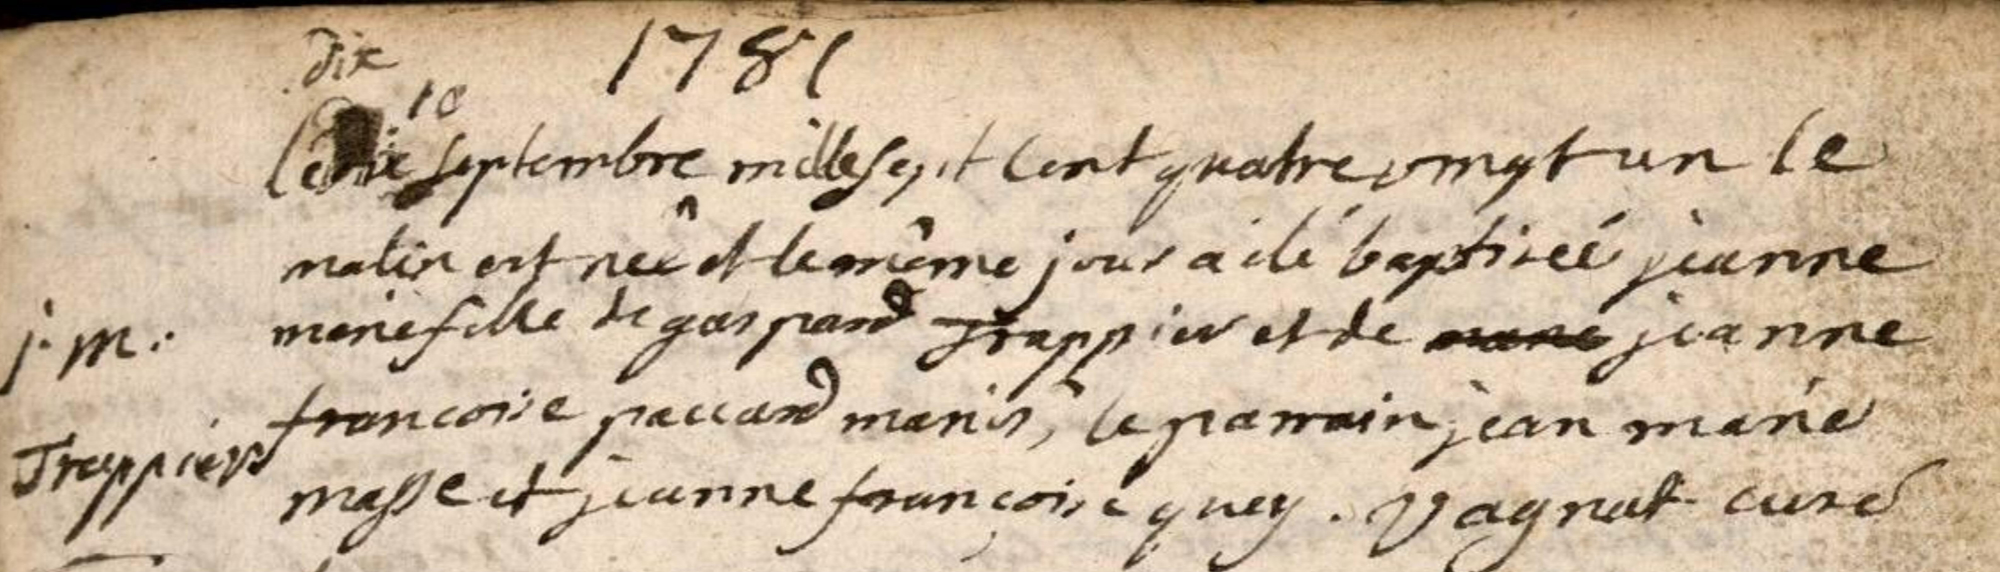 dix 1781
10
le dix septembre mille sept cent quatre vingt un le
matin est neê et le même jour a été baptiseé jeanne
j. m. marie fille de gaspard Trappier et de jeanne
francoise paccard mariés, le parrain jean marie
Trappier
masse et jeanne francoise quey. Vagnat curé